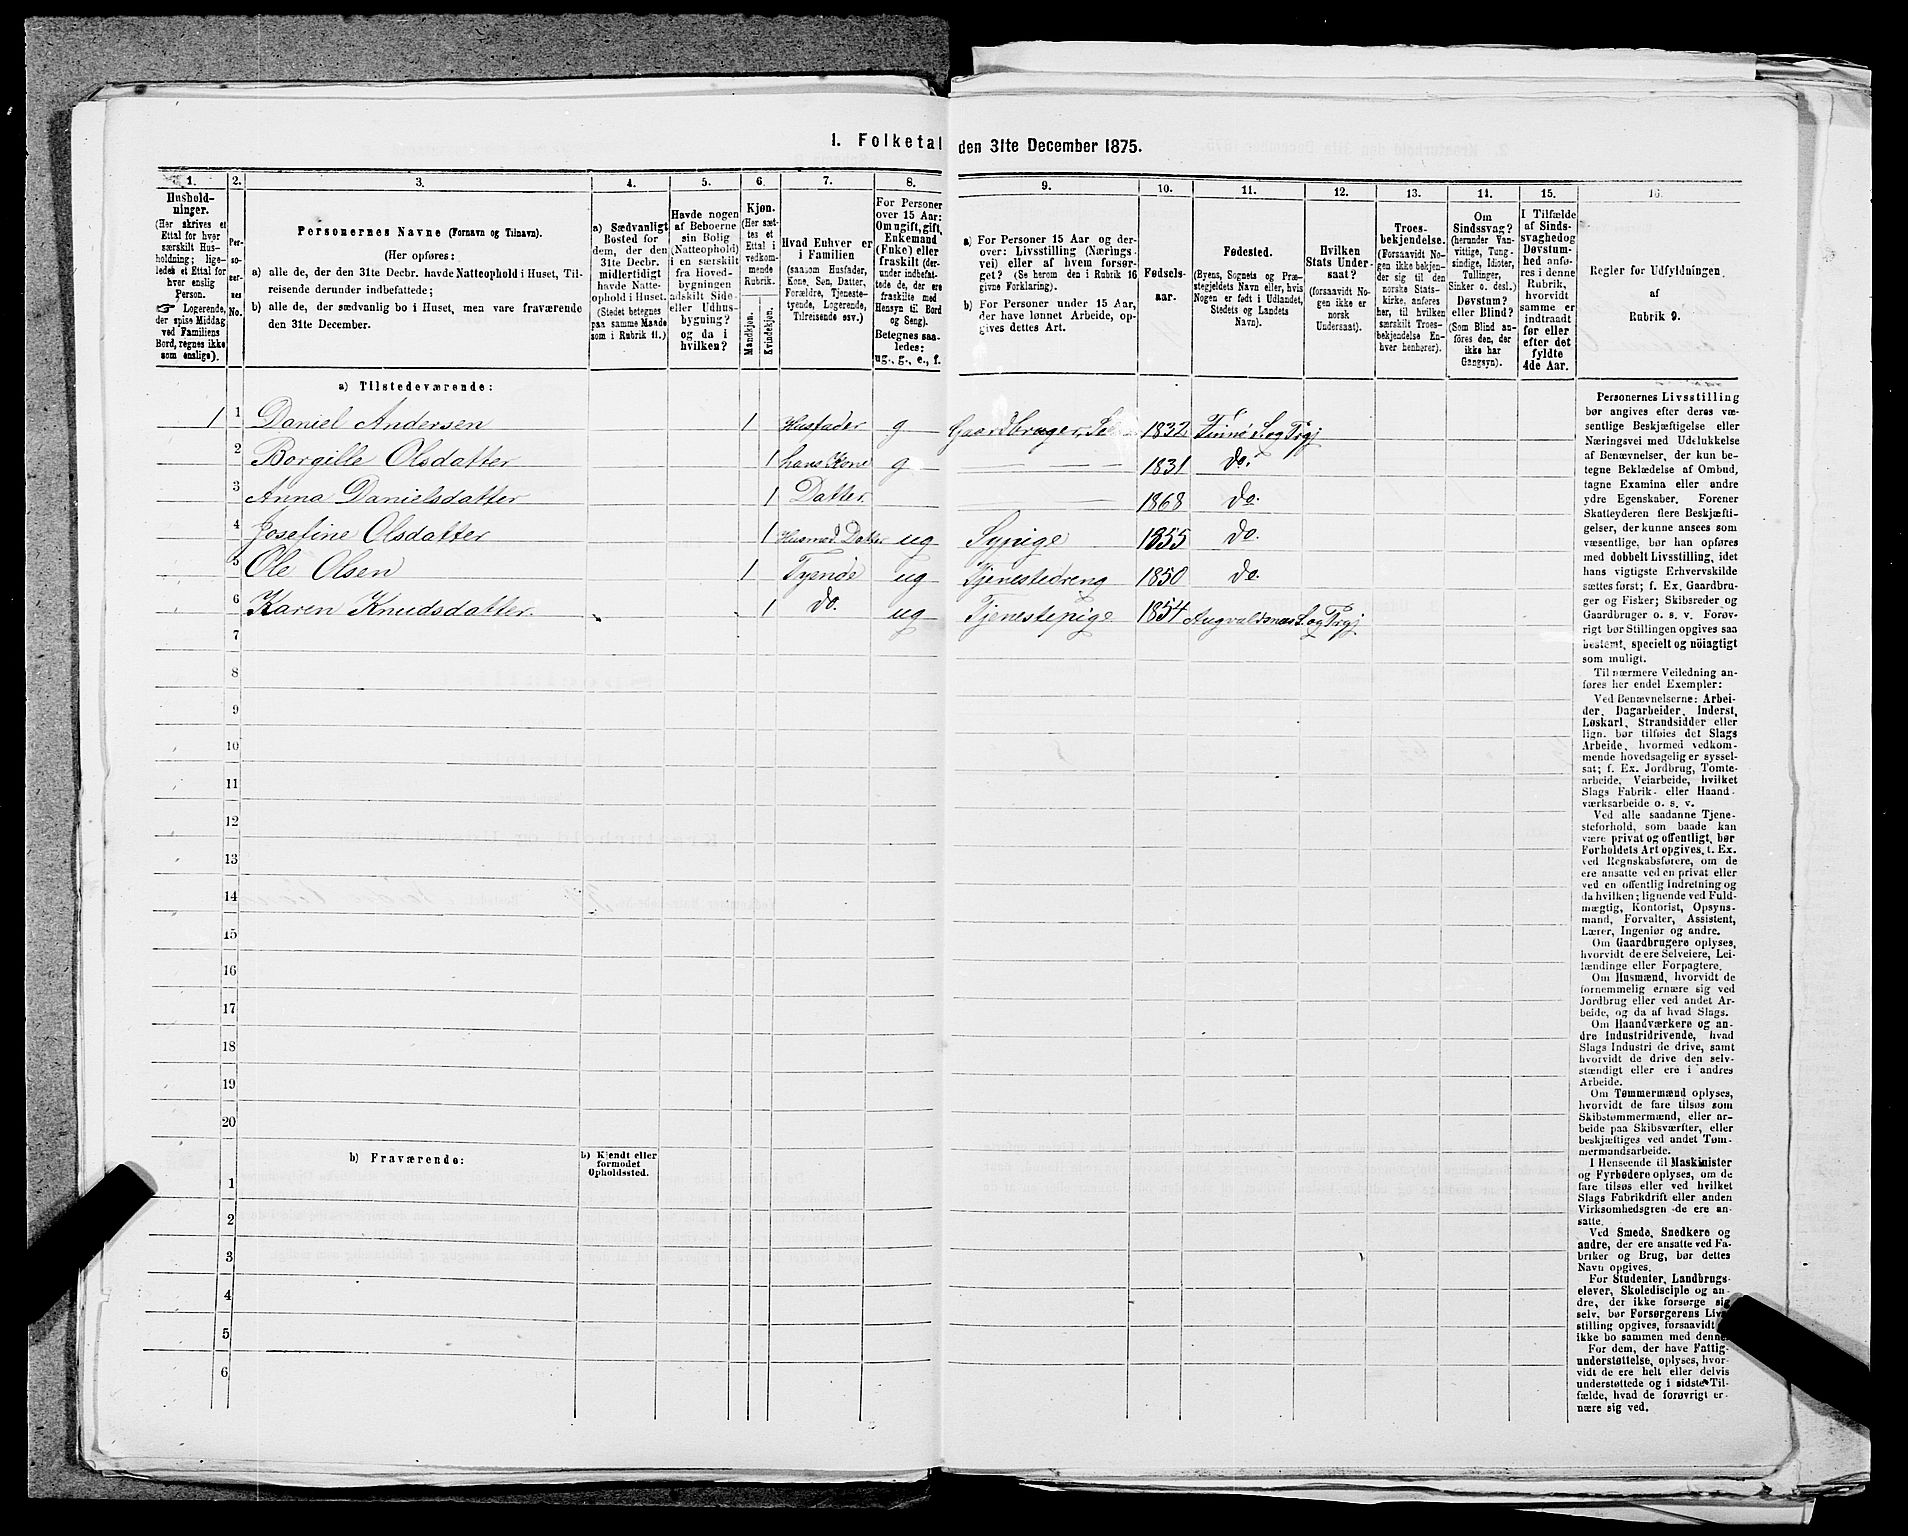 1. Folketal den 31te December 1875.
1. 2. 3. 4. 5. 6. 7. 8. 9. 10. 11. 12. 13. 14. 15. 16.
Hushold-
ninger.
(Her skrives et
Ettal for hver
særskilt Hus-
holdning; lige-
ledes et Ettal for
hver enslig
Person.
☞ Logerende,
der spise Middag
ved Familiens
Bord, regnes ikke
som enslige).
Per-
so-
ner-
nes
No.
Personernes Navne (Fornavn og Tilnavn).
(Her opføres:
a) alle de, der den 31te Decbr. havde Natteophold i Huset, Til-
reisende derunder indbefattede;
b) alle de, der sædvanlig bo i Huset, men vare fraværende
den 31te December.
a) Sædvanligt
Bosted for
dem, der den
31te Decbr.
midlertidigt
havde Natte-
ophold i Huset.
(Stedet betegnes
paa samme Maade
som i Rubrik 11.)
Havde nogen
af Beboerne
sin Bolig
(Natteophold)
i en særskilt
fra Hoved-
bygningen
adskilt Side-
eller Udhus-
bygning? og
da i
hvilken?
Kjøn.
(Her sæt-
tes et
Ettal i
vedkom-
mende
Rubrik.
Mandkjøn.
Kvindekjøn.
Hvad Enhver er
i Familien
(saasom Husfader,
Kone, Søn, Datter,
Forældre, Tjeneste-
tyende, Logerende,
Tilreisende osv.)
For Personer
over 15 Aar:
Om ugift, gift,
Enkemand
(Enke) eller
fraskilt (der-
under indbefat-
tede de, der ere
fraskilte med
Hensyn til Bord
og Seng).
Betegnes saa-
ledes:
ug., g., e., f.
a) For Personer 15 Aar og der-
over: Livsstilling (Nærings-
vei) eller af hvem forsør-
get? (Se herom den i Rubrik 16
givne Forklaring).
b) For Personer under 15 Aar,
der have lønnet Arbeide, op-
gives dettes Art.
Fødsels-
aar.
Fødested.
(Byens, Sognets og Præ-
stegjeldets Navn eller, hvis
Nogen er født i Udlandet,
Stedets og Landets
Navn).
Hvilken
Stats Under-
saat?
(forsaavidt No-
gen ikke er
norsk
Undersaat).
Troes-
bekjendelse.
(Forsaavidt No-
gen ikke bekjen-
der sig til den
norske Stats-
kirke, anføres
her, til hvilken
særskilt Troes-
bekjendelse En-
hver henhører).
Om
Sindssvag?
(herunder Van-
vittige, Tung-
sindige, Idioter,
Tullinger,
Sinker o. desl.)
Døvstum?
eller Blind?
(Som Blind an-
føres den, der
ikke har
Gangsyn).
I Tilfælde
af Sinds-
svaghed og
Døvstum-
hed anfø-
res i denne
Rubrik,
hvorvidt
samme er
indtraadt
før eller
efter det
fyldte
4de Aar.
Regler for Udfyldningen
af
Rubrik 9.
a) Tilstedeværende:
1 1 Daniel Andersen 1 Husfader g Gaardbruger, 1832 Finnø S. og Prgj
2 Borgille Olsdatter 1 hans Kone g 1831 do.
3 Anna Danielsdatter 1 Datter 1868 do.
4 Josefine Olsdatter 1 Husmd. Datter ug Sypige 1855 do.
5 Ole Olsen 1 Tyende ug Tjenestedreng 1850 do.
6 Karen Knudsdatter. 1 do. ug Tjenestepige 1854 Augvaldsnæs S. og Prgj
7
8
9
10
11
12
13
14
15
16
17
18
19
20
b) Fraværende:
b) Kjendt eller
formodet
Opholdssted.
1
2
3
4
5
6
Personernes Livsstilling
bør angives efter deres væ-
sentlige Beskjæftigelse eller
Næringsvei med Udelukkelse
af Benævnelser, der kun be-
tegne Beklædelse af Ombud,
tagne Examina eller andre
ydre Egenskaber. Forener
Skatteyderen flere Beskjæfti-
gelser, der kunne ansees som
væsentlige, bør han opføres
med dobbelt Livsstilling, idet
hans vigtigste Erhvervskilde
sættes først; f. Ex. Gaardbru-
ger og Fisker; Skibsreder og
Gaardbruger o. s. v. Forøv-
rigt bør Stillingen opgives saa
bestemt, specielt og nöiagtigt
som muligt.
Til nærmere Veiledning an-
føres her endel Exempler:
Ved Benævnelserne: Arbei-
der, Dagarbeider, Inderst,
Løskarl, Strandsidder eller
lign. bør tilføies det Slags
Arbeide, hvormed vedkom-
mende hovedsagelig er syssel-
sat; f. Ex. Jordbrug, Tomte-
arbeide, Veiarbeide, hvilket
Slags Fabrik- eller Haand-
værksarbeide o. s. v.
Ved alle saadanne Tjene-
steforhold, som baade kan
være privat og offentligt, bør
Forholdets Art opgives, t. Ex.
ved Regnskabsførere, om de
ere ansatte ved en privat eller
ved en offentlig Indretning og
da hvilken; lignende ved Fuld-
mægtig, Kontorist, Opsyns-
mand, Forvalter, Assistent,
Lærer, Ingeniør og andre.
Om Gaardbrugere oplyses,
hvorvidt de ere Selveiere, Lei-
lændinge eller Forpagtere.
Om Husmænd, hvorvidt de
fornemmelig ernære sig ved
Jordbrug eller ved andet Ar-
beide, og da af hvad Slags.
Om Haandværkere og an-
dre Industridrivende, hvad
Slags Industri de drive, samt
hvorvidt de drive den selv-
stændigt eller ere i andres
Arbeide.
Om Tømmermænd oplyses,
hvorvidt de fare tilsøs som
Skibstømmermænd, eller ar-
beide paa Skibsværfter, eller
beskjæftiges ved andet Tøm-
mermandsarbeide.
I Henseende til Maskinister
og Fyrbødere oplyses, om de
fare tilsøs eller ved hvilket
Slags Fabrikdrift eller anden
Virksomhedsgren de ere an-
satte.
Ved Smede, Snedkere og
andre, der ere ansatte ved Fa-
briker og Brug, bør dettes
Navn opgives.
For Studenter, Landbrugs-
elever, Skoledisciple og an-
dre, der ikke forsørge sig
selv, bør Forsørgerens Livs-
stilling opgives, forsaavidt
ikke bo sammen med denne.
For dem, der have Fattig-
understøttelse, oplyses, hvor-
vidt de ere helt eller delvis
understøttede og i sidste Til-
fælde, hvad de forøvrigt er-
nære sig ved.